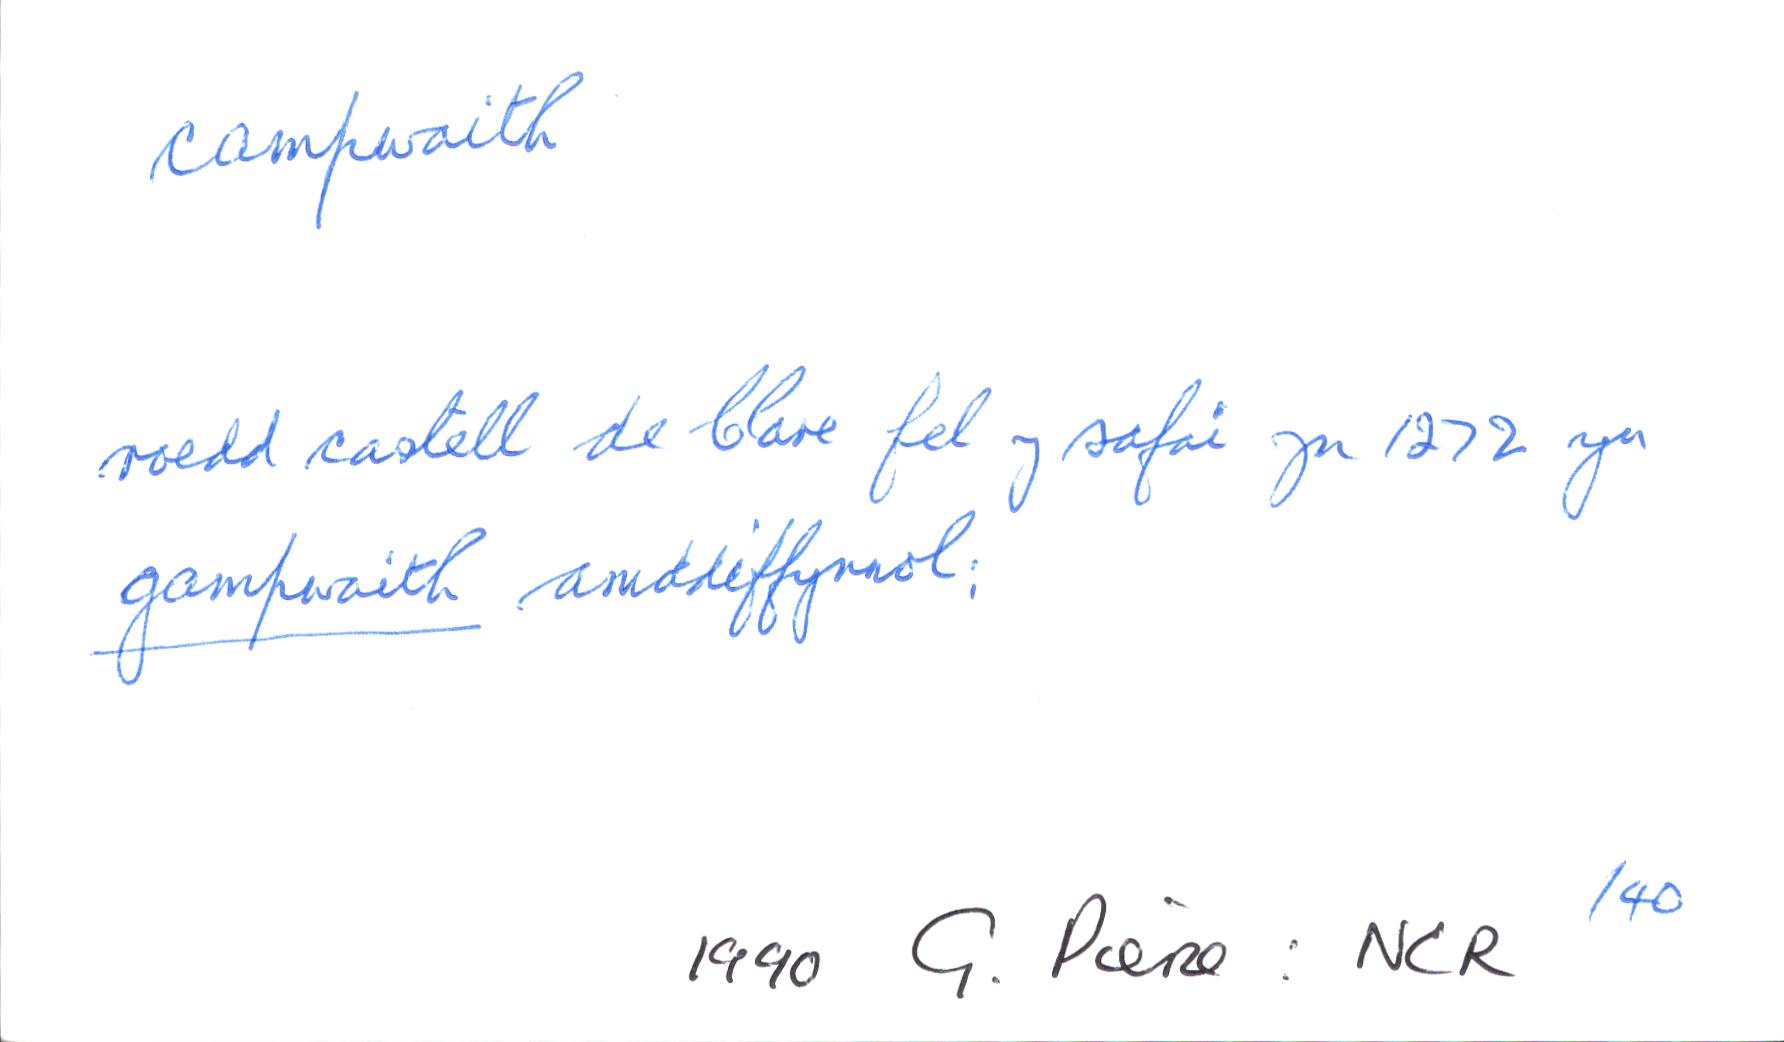 campwaith
roedd castell de Clare fel y safai yn 1272 yn
gampwaith amddiffynnol;
1990 G. Pierce : NCR /40